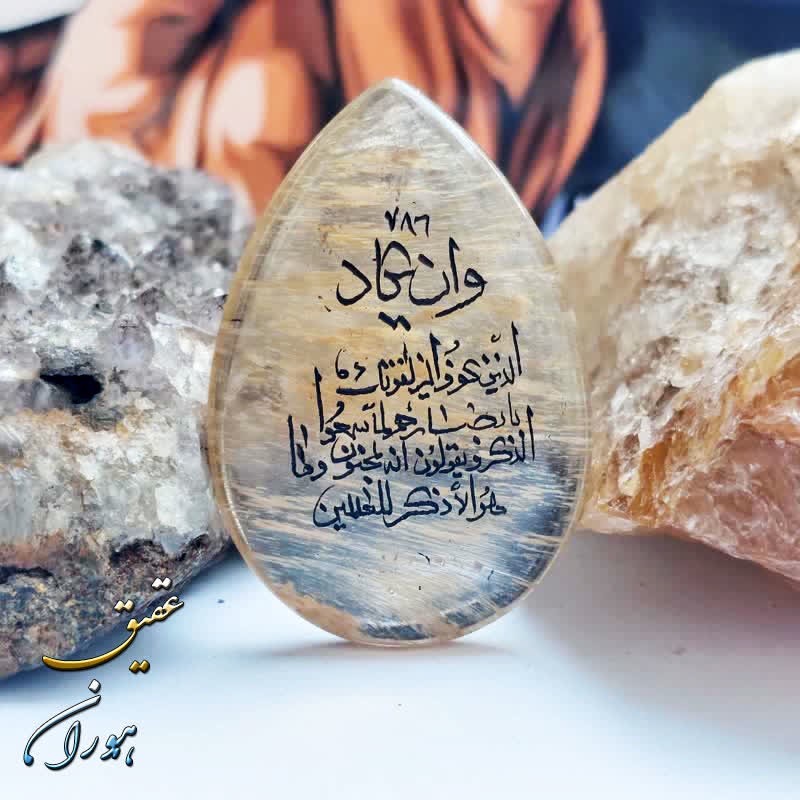 ٧٨٦
وان یکاد
الذین کفروا لیزلقونک
بابصارهم لما سمعوا
الذکر و یقولون انه لمجنون وما
هو الا ذکر للعلمین
عقیق
هوران